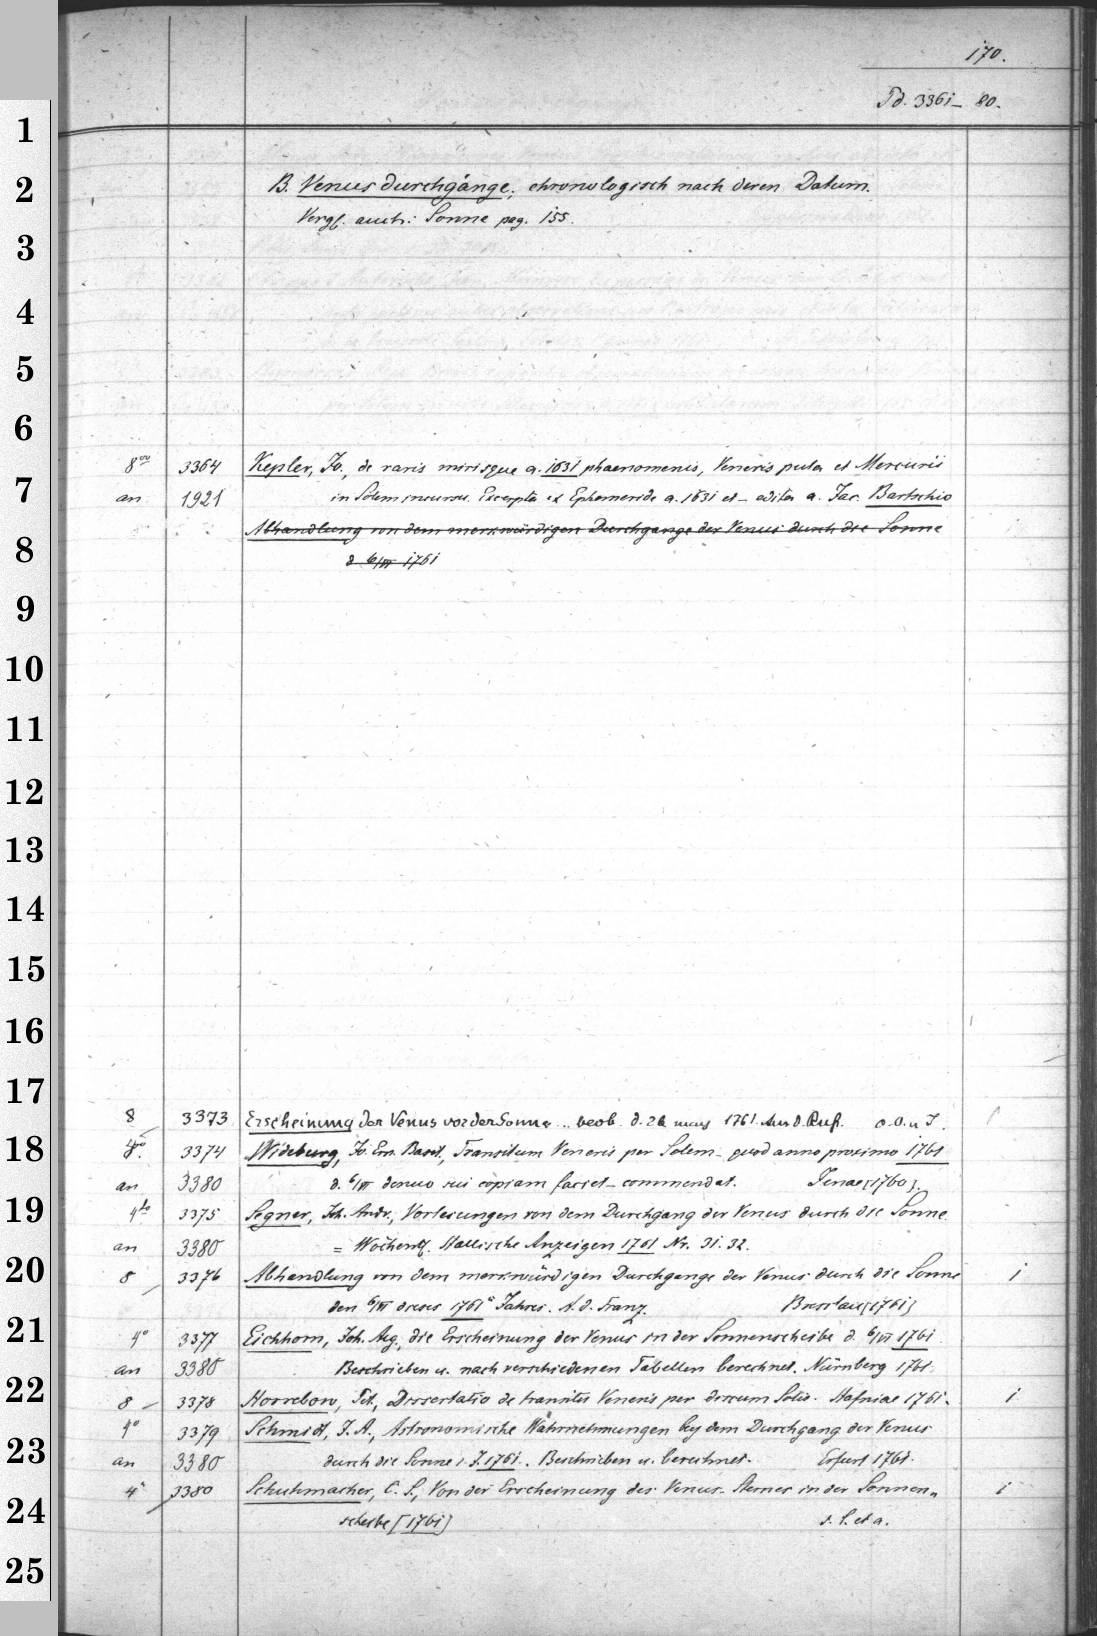 170.
Td. 3361– 80.
1
2 B. Venusdurchgänge, chronologisch nach deren Datum.
Vergl. auch: Sonne pag. 155.
3
4
5
6
8vo 3364 Kepler, Jo., de raris mirisque a. 1631 phaenomenis, Veneris puta et Mercurii
7 an 1921 in Solem incursu. Excerpta ex Ephemeride a. 1631 et – edita a Jac. Bartschio
Abhandlung von dem merkwürdigen Durchgange der Venus durch die Sonne
8 d 6/VI 1761
9
10
11
12
13
14
15
16
17
8 3373 Erscheinung der Venus vor der Sonne ... beob. d. 26 1761. Aus d. o. O. u J.
18 4o. 3374 Wideburg, Jo. Ern. Basil., Transitum Veneris per Solem – quod anno proximo 1761
an 3380 d. 6/VI denuo sui copiam faciet – commendat. Jenae [1760].
19 4to 3375 Segner, Joh. Andr., Vorlesungen von dem Durchgang der Venus durch die Sonne
an 3380 = Wöchentl. Hallische Anzeigen 1761 Nr. 31. 32.
20 8 3376 Abhandlung von dem merkwürdigen Durchgange der Venus durch die Sonne 1
den 6/VI dieses 1761n Jahres. A. d. Franz. Breslau [1761]
21 4o 3377 Eichhorn, Joh. Aug., die Erscheinung der Venus in der Sonnenscheibe d. 6/VI 1761
an 3380 Beschrieben u. nach verschiedenen Tabellen berechnet. Nürnberg 1761
22 8 – 3378 Horrebow, Pet., Dissertatio de transitu Veneris per discum Solis. Hafniae 1761. 1
4o 3379 Schmidt, J. A., Astronomische Wahrnehmungen bey dem Durchgang der Venus
23 an 3380 durch die Sonne i. J. 1761. Beschrieben u. berechnet. Erfurt 1761.
4o 3380 Schuhmacher, C. S., Von der Erscheinung des Venus-Sternes in der Sonnen„ 1
24 scheibe [1761] s. l. et a.
25